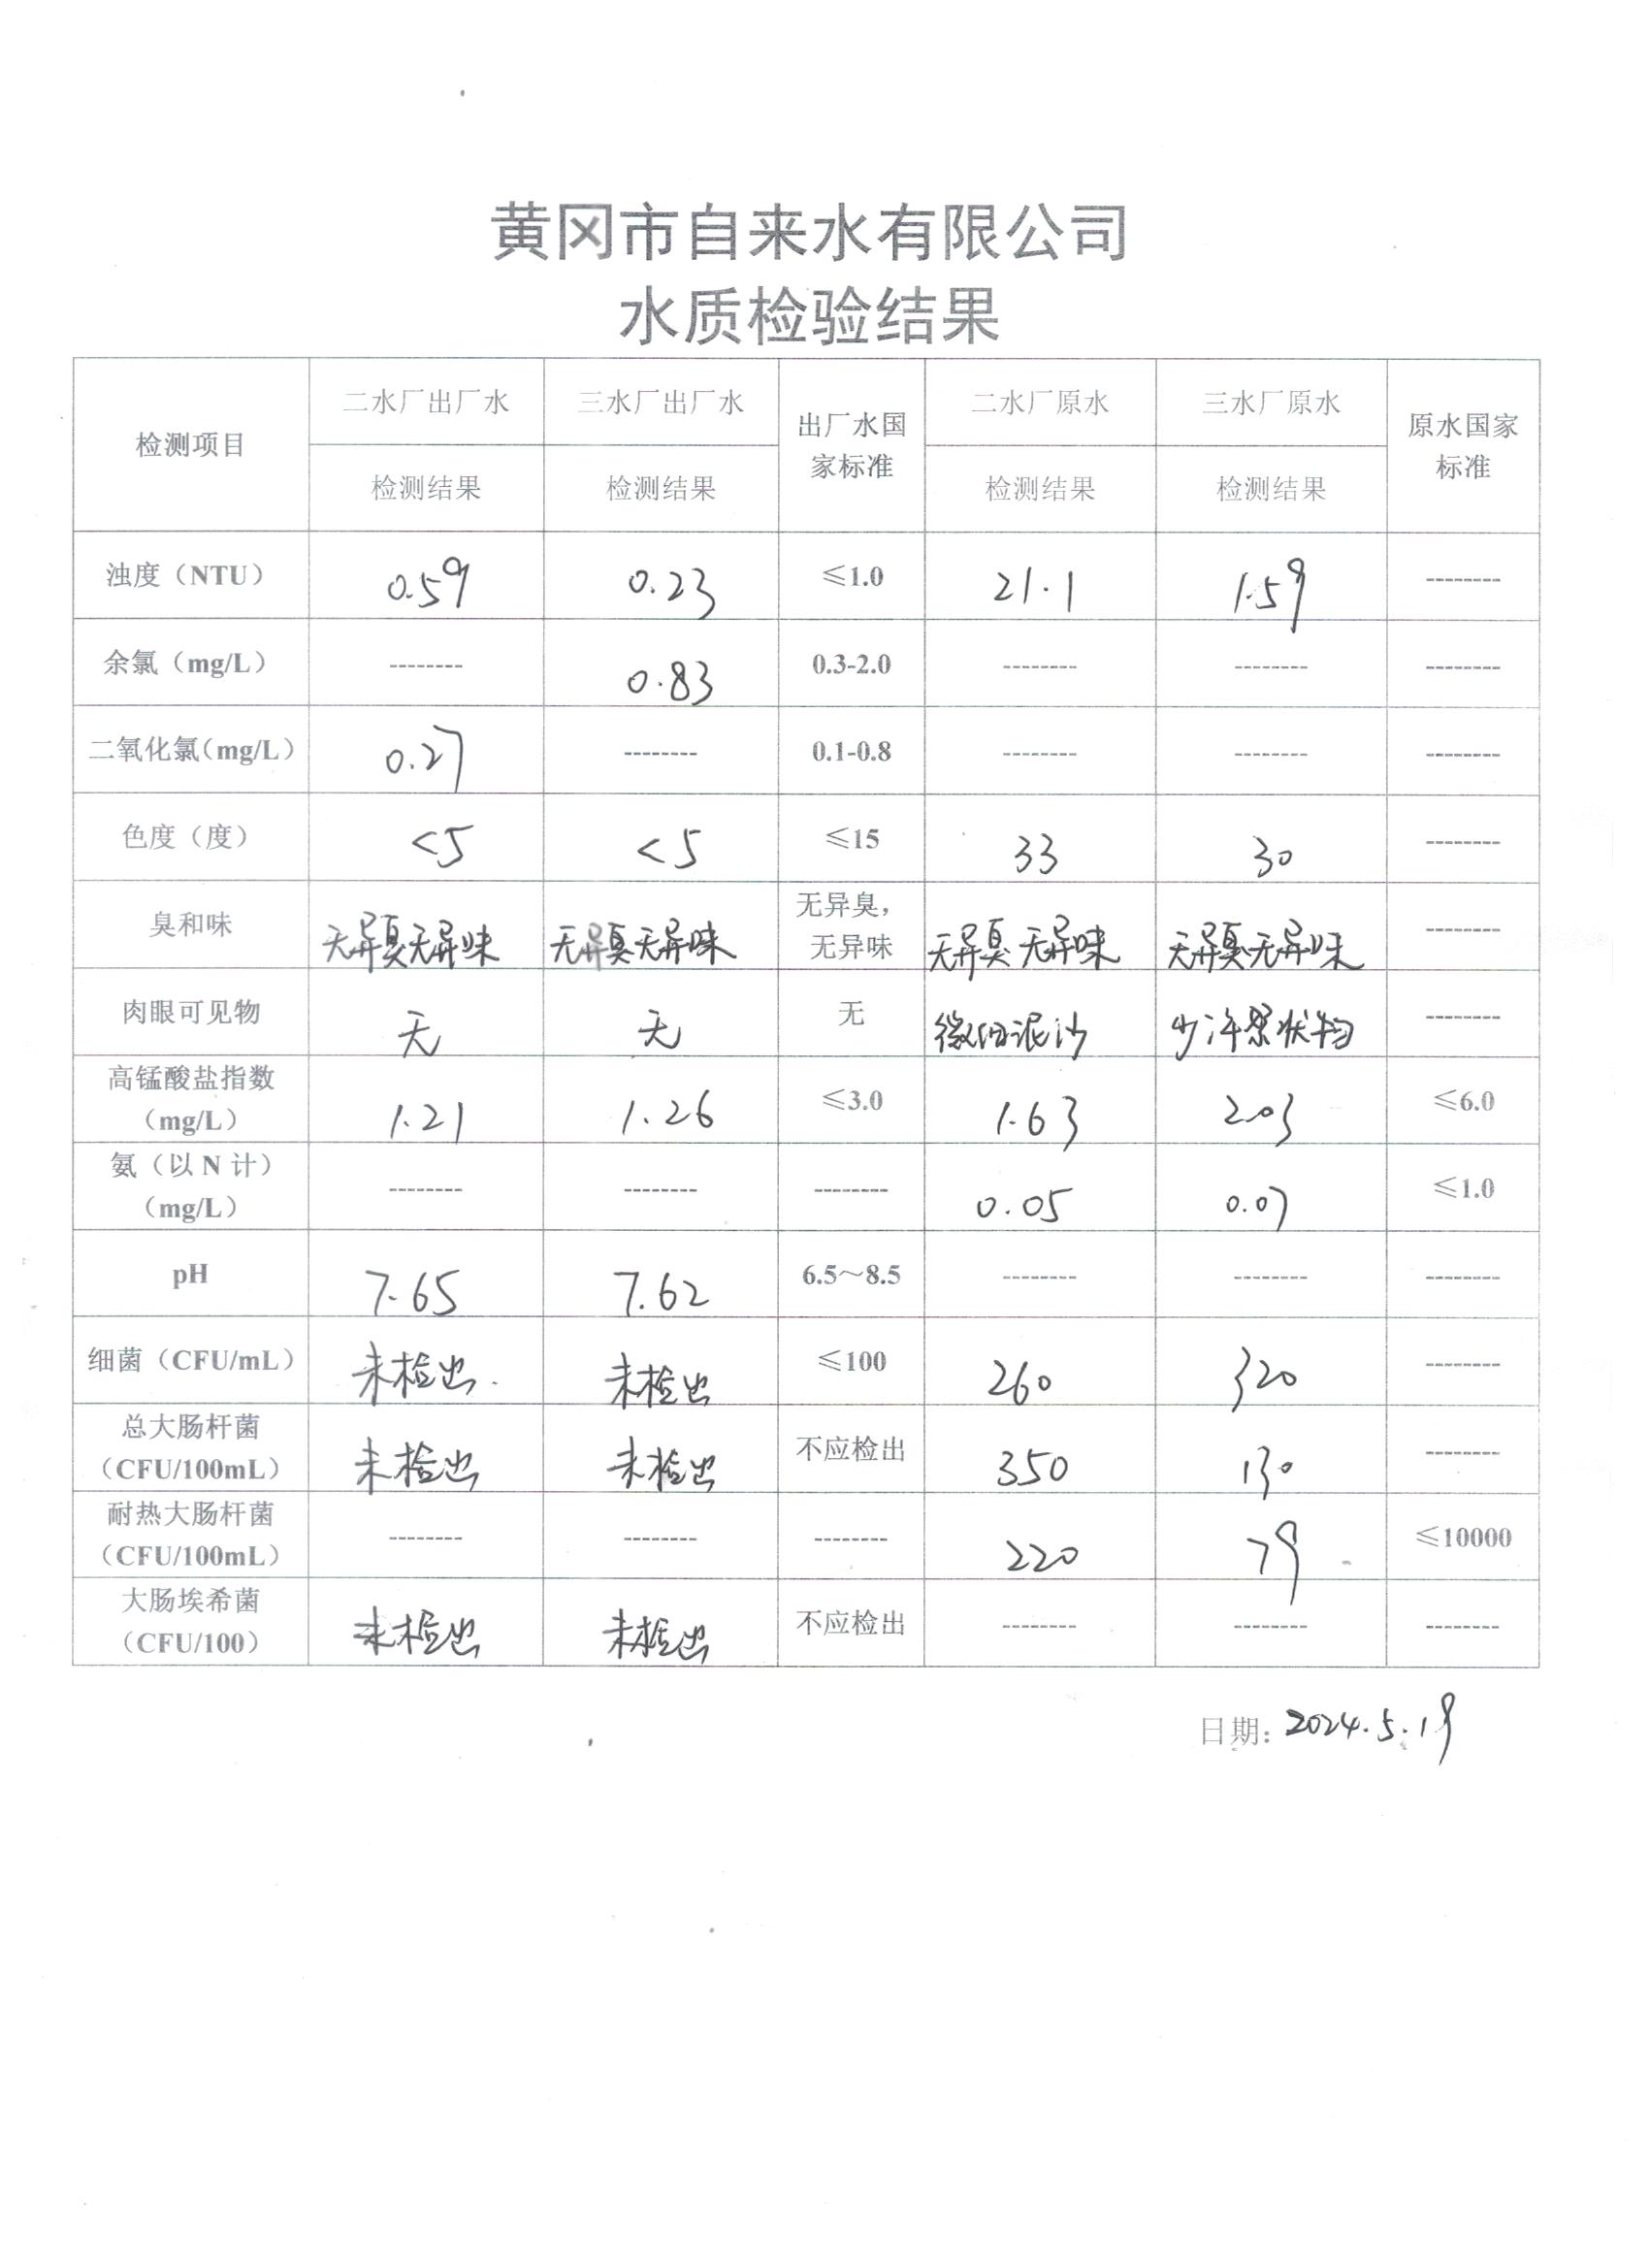 黄冈市自来水有限公司
水质检验结果
检测项目 二水厂出厂水 三水厂出厂水 出厂水国家标准 二水厂原水 三水厂原水 原水国家标准
检测结果 检测结果 检测结果 检测结果
浊度（NTU） 0.59 0.23 ≤1.0 21.1 1.59 --------
余氯（mg/L） -------- 0.83 0.3-2.0 -------- -------- --------
二氧化氯（mg/L） 0.27 -------- 0.1-0.8 -------- -------- --------
色度（度） <5 <5 ≤15 33 30 --------
臭和味 无异臭无异味 无异臭无异味 无异臭，无异味 无异臭无异味 无异臭无异味 --------
肉眼可见物 无 无 无 微细泥沙 少许絮状物 --------
高锰酸盐指数（mg/L） 1.21 1.26 ≤3.0 1.63 2.03 ≤6.0
氨（以 N 计）（mg/L） -------- -------- -------- 0.05 0.07 ≤1.0
pH 7.65 7.62 6.5～8.5 -------- -------- --------
细菌（CFU/mL） 未检出 未检出 ≤100 260 320 --------
总大肠杆菌（CFU/100mL） 未检出 未检出 不应检出 350 130 --------
耐热大肠杆菌（CFU/100mL） -------- -------- -------- 220 79 ≤10000
大肠埃希菌（CFU/100） 未检出 未检出 不应检出 -------- -------- --------
日期：2024.5.19